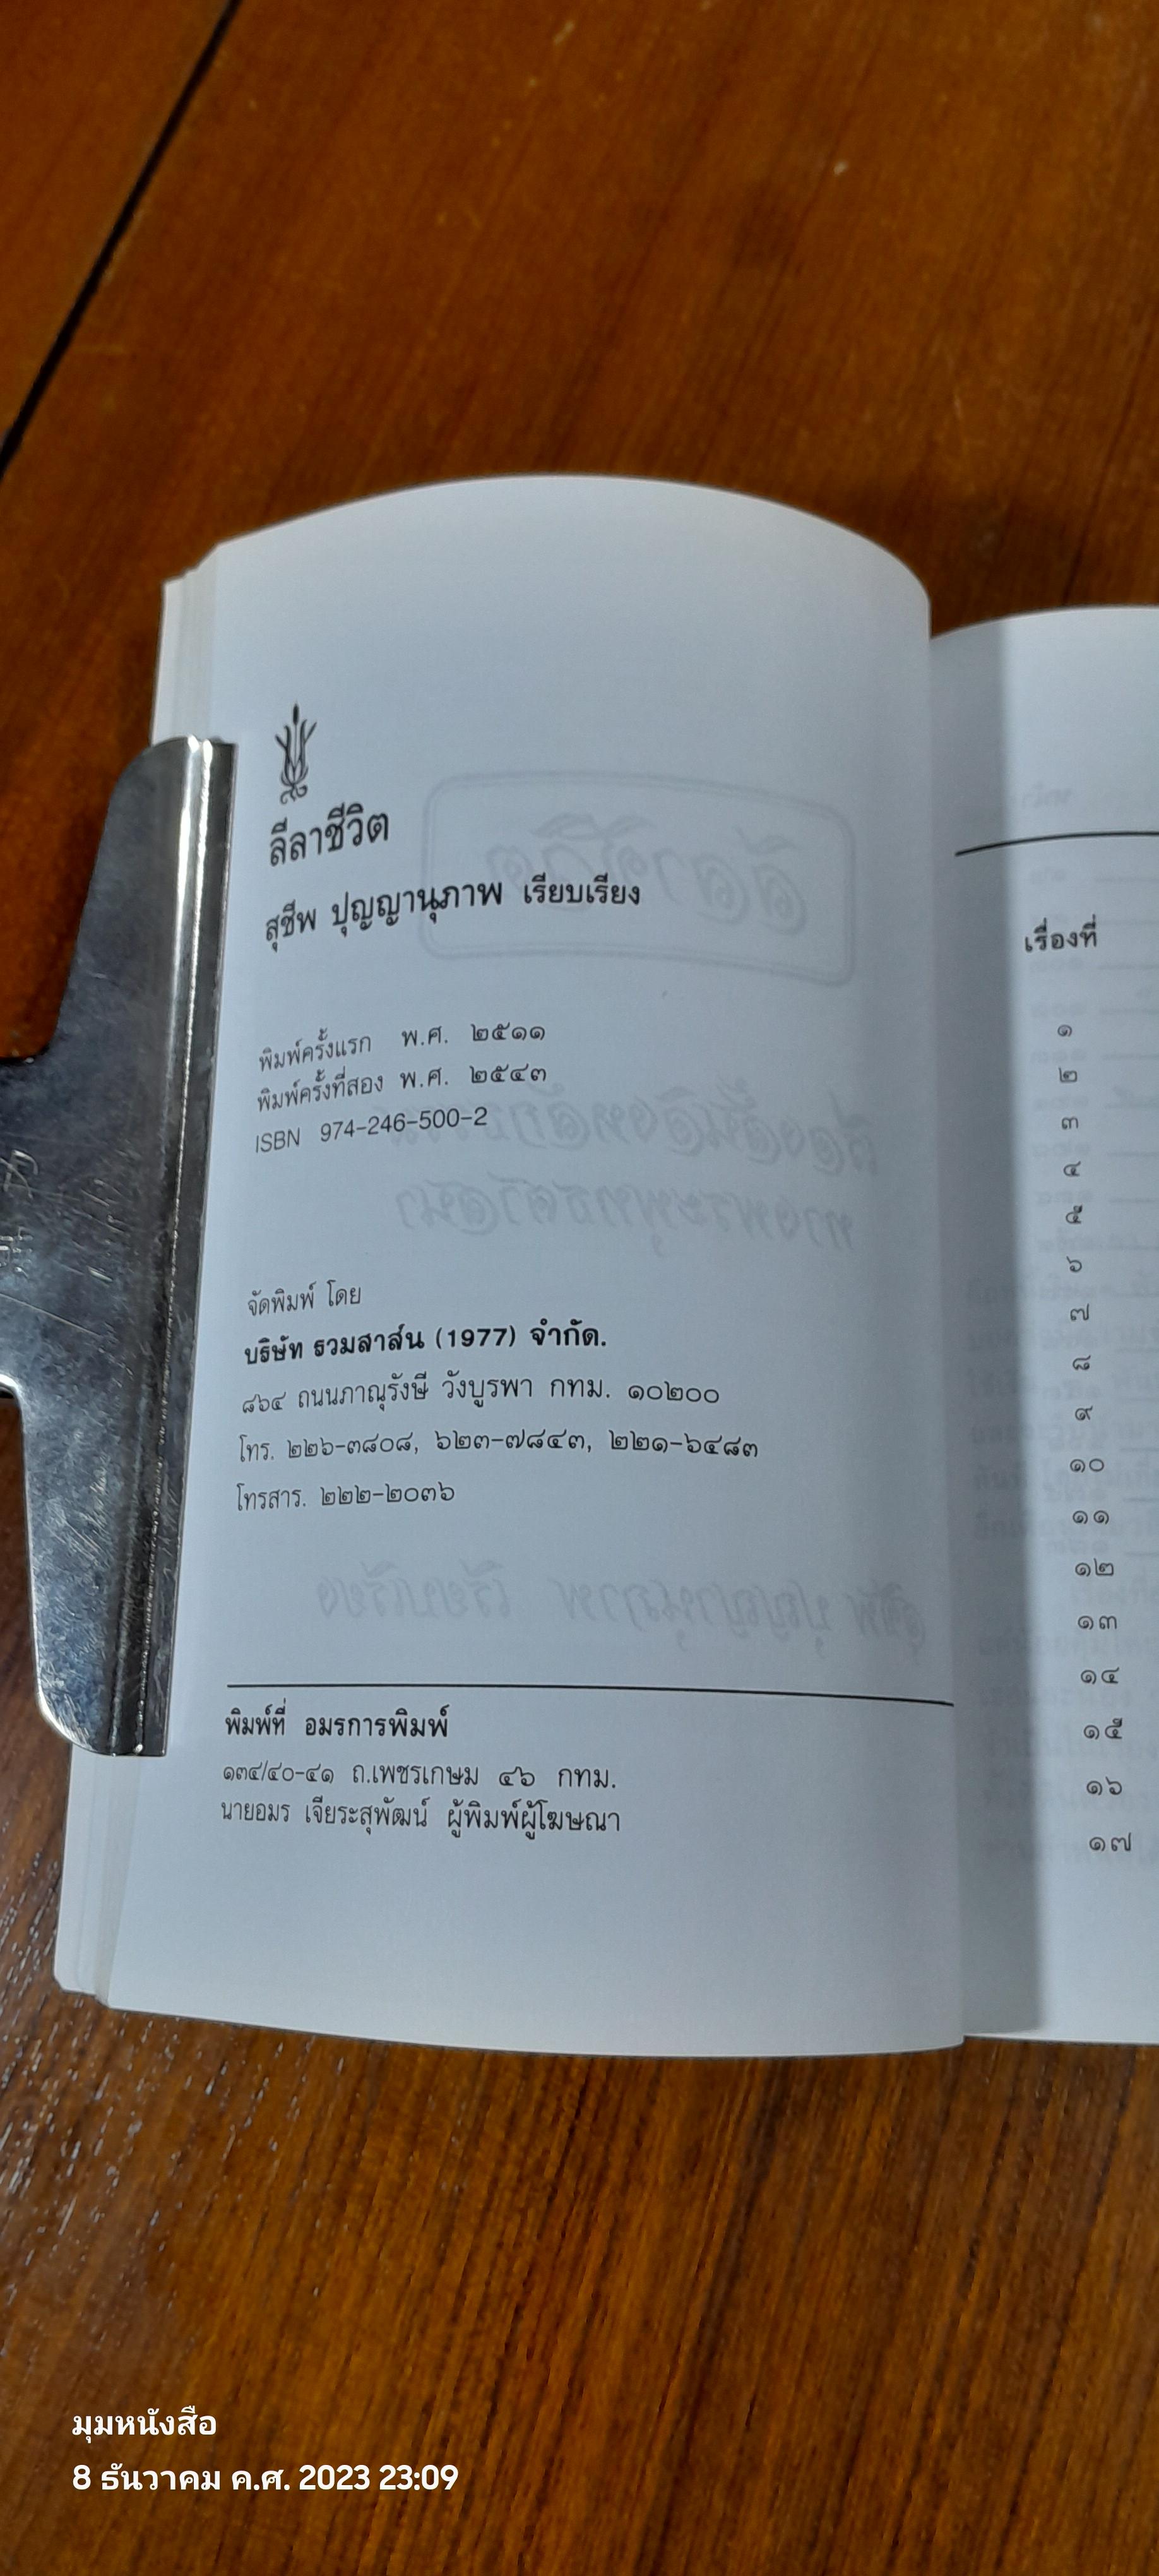 ลีลาชีวิต
สุชีพ ปุญญานุภาพ เรียบเรียง
พิมพ์ครั้งแรก พ.ศ. ๒๕๑๑
พิมพ์ครั้งที่สอง พ.ศ. ๒๕๔๓
ISBN 974-246-500-2
จัดพิมพ์ โดย
บริษัท รวมสาส์น (1977) จำกัด.
๘๖๔ ถนนภาณุรังษี วังบูรพา กทม. ๑๐๒๐๐
โทร. ๒๒๖-๓๘๐๘, ๖๒๓-๗๘๔๓, ๒๒๑-๖๔๘๓
โทรสาร. ๒๒๒-๒๐๓๖
พิมพ์ที่ อมรการพิมพ์
๑๓๔/๔๐-๔๑ ถ.เพชรเกษม ๔๖ กทม.
นายอมร เจียระสุพัฒน์ ผู้พิมพ์ผู้โฆษณา
เรื่องที่
๑
๒
๓
๔
๕
๖
๗
๘
๙
๑๐
๑๑
๑๒
๑๓
๑๔
๑๕
๑๖
๑๗
มุมหนังสือ
8 ธันวาคม ค.ศ. 2023 23:09